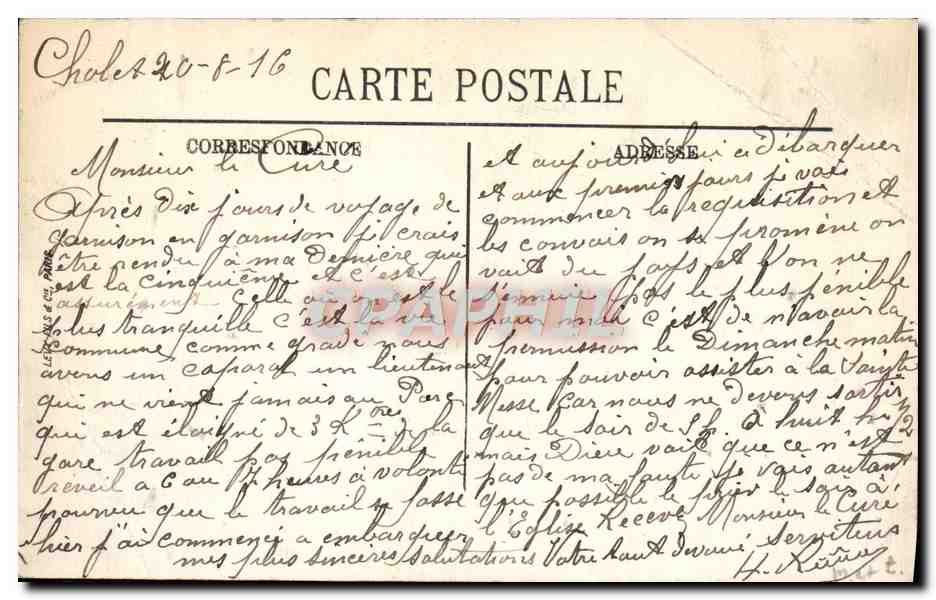 Cholet 20-8-16
CARTE POSTALE
CORRESPONDANCE
ADRESSE
Monsieur le Curé
Après dix jours de voyage de
garnison en garnison je crois
être rendu à ma dernière qui
est la cinquième et c'est
assurément celle où on est le
plus tranquille c'est la vie
commune comme gradé nous
avons un caporal un lieutenant
qui ne vient jamais au Parc
qui est éloigné de 3 K de la
gare travail pas pénible
reveil a 6 au 7 heures à volonté
pourvu que le travail se fasse
hier j'ai commencé a embarquer
et aujourd'hui a débarquer
et aux premiers jours je vais
commencer la requisition et
les convois on se promène on
voit du pays et l'on ne
s'ennuie pas le plus pénible
pour moi c'est de n'avoir la
permission le Dimanche matin
pour pouvoir assister à la Sainte
Messe car nous ne devons sortir
que le soir de 5 h. à huit h 1/2
mais Dieu voit que ce n'est
pas de ma faute je vais autant
que possible le prier le soir à
l'Eglise Recevez Monsieur le Curé
mes plus sincères salutations Votre tout devoué serviteur
LEVY FILS & Cie, PARIS
CPAPHIL